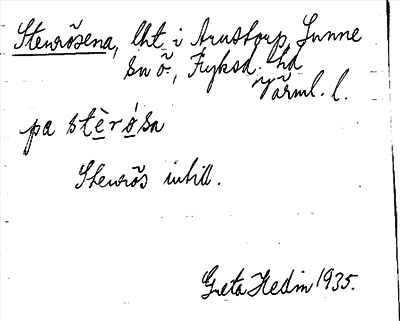 Stenrösena, lht i Arnstorp, Sunne
sn ö., Fryksd. hd
Värml. l.
pa stèrö́sa
Stenrös intill.
Greta Hedin 1935.